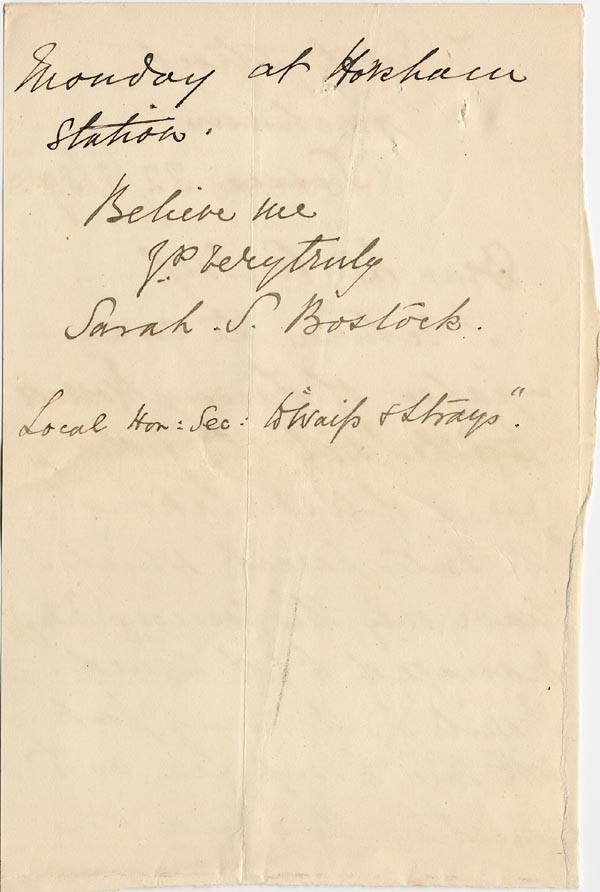 Monday at Horsham
station.
Believe me
Yrs very truly
Sarah. S. Bostock.
Local Hon: Sec: to "Waifs & Strays".